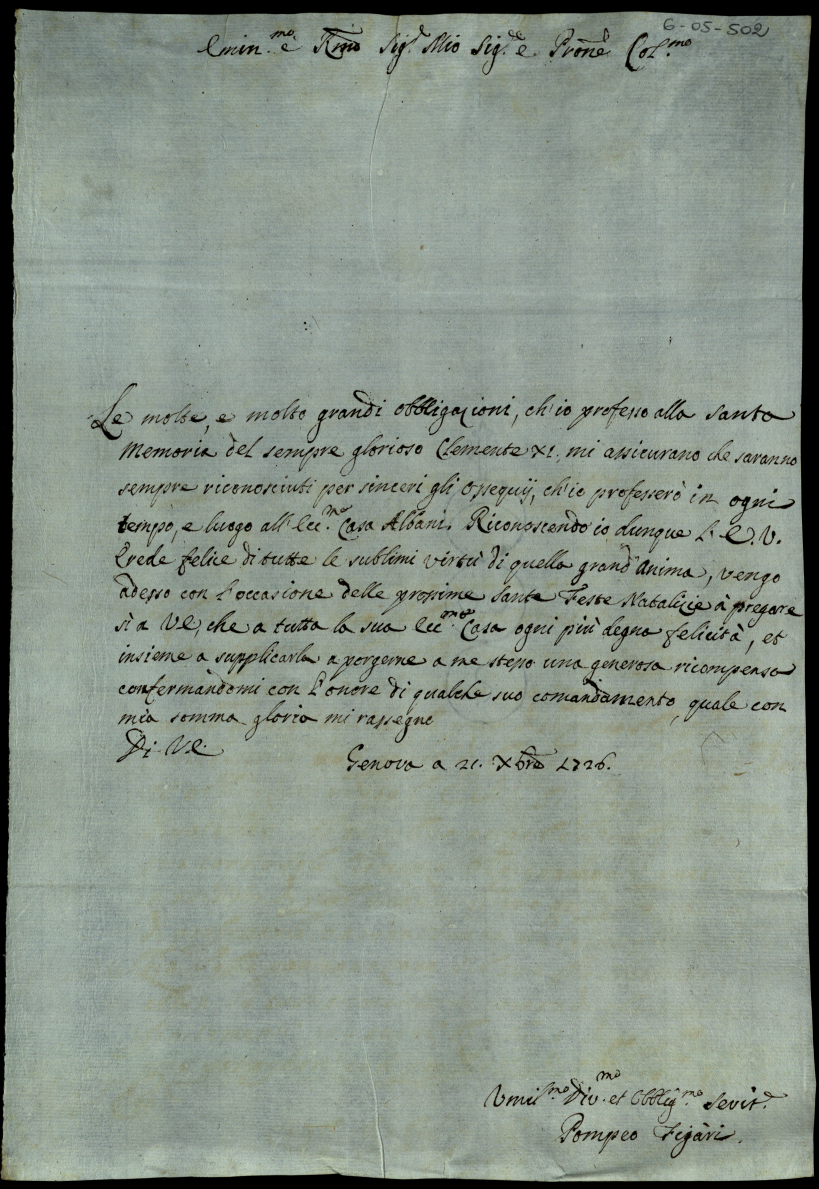 6-05-502
Emin.mo e Rmo Sig.r Mio Sig.re e Prone Col.mo
Le molte, e molto grandi obbligazioni, ch'io professo alla santa
Memoria del sempre glorioso Clemente XI. mi assicurano che saranno
sempre riconosciuti per sinceri gli ossequij, ch'io professerò in ogni
tempo, e luogo all'Ecc.ma Casa Albani. Riconoscendo io dunque l'E.V.
Erede felice di tutte le sublimi virtù di quella grand'Anima, vengo
adesso con l'occasione delle prossime sante Feste Natalizie à pregare
sì a VE, che a tutta la sua Ecc.ma Casa ogni più degna felicità, et
insieme a supplicarla a porgerne a me stesso una generosa ricompensa
confermandomi con l'onore di qualche suo comandamento, quale con
mia somma gloria mi rassegno
Di VE.
Genova a 21. Xbre 1726.
Vmil.mo Div.mo et Obblig.mo Sevit.e
Pompeo Figari.